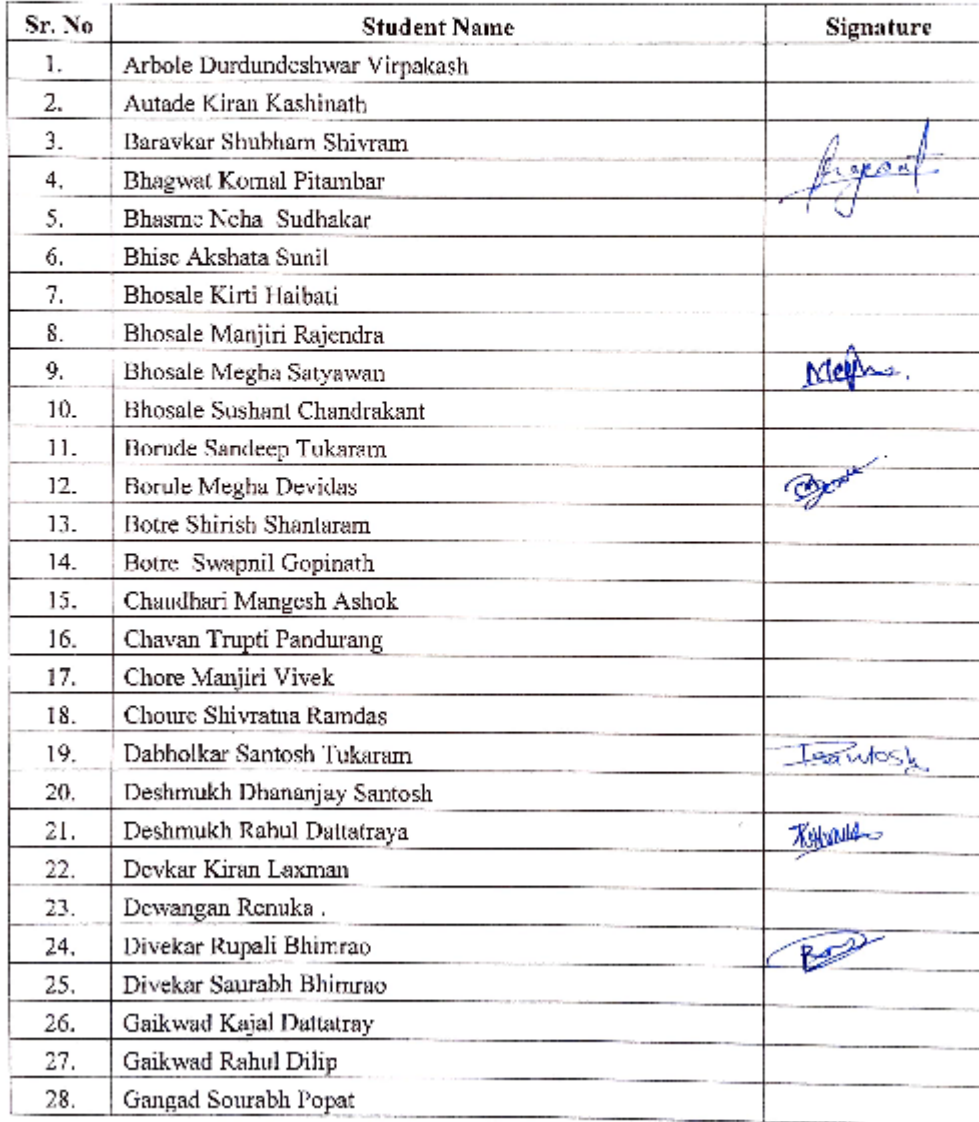 Sr. No Student Name Signature
1. Arbole Durdundeshwar Virpakash
2. Autade Kiran Kashinath
3. Baravkar Shubham Shivram
4. Bhagwat Komal Pitambar
5. Bhasme Neha Sudhakar
6. Bhise Akshata Sunil
7. Bhosale Kirti Haibati
8. Bhosale Manjiri Rajendra
9. Bhosale Megha Satyawan Megha.
10. Bhosale Sushant Chandrakant
11. Borude Sandeep Tukaram
12. Borule Megha Devidas
13. Botre Shirish Shantaram
14. Botre Swapnil Gopinath
15. Chaudhari Mangesh Ashok
16. Chavan Trupti Pandurang
17. Chore Manjiri Vivek
18. Choure Shivratna Ramdas
19. Dabholkar Santosh Tukaram
20. Deshmukh Dhananjay Santosh
21. Deshmukh Rahul Dattatraya
22. Devkar Kiran Laxman
23. Dewangan Renuka .
24. Divekar Rupali Bhimrao
25. Divekar Saurabh Bhimrao
26. Gaikwad Kajal Dattatray
27. Gaikwad Rahul Dilip
28. Gangad Sourabh Popat